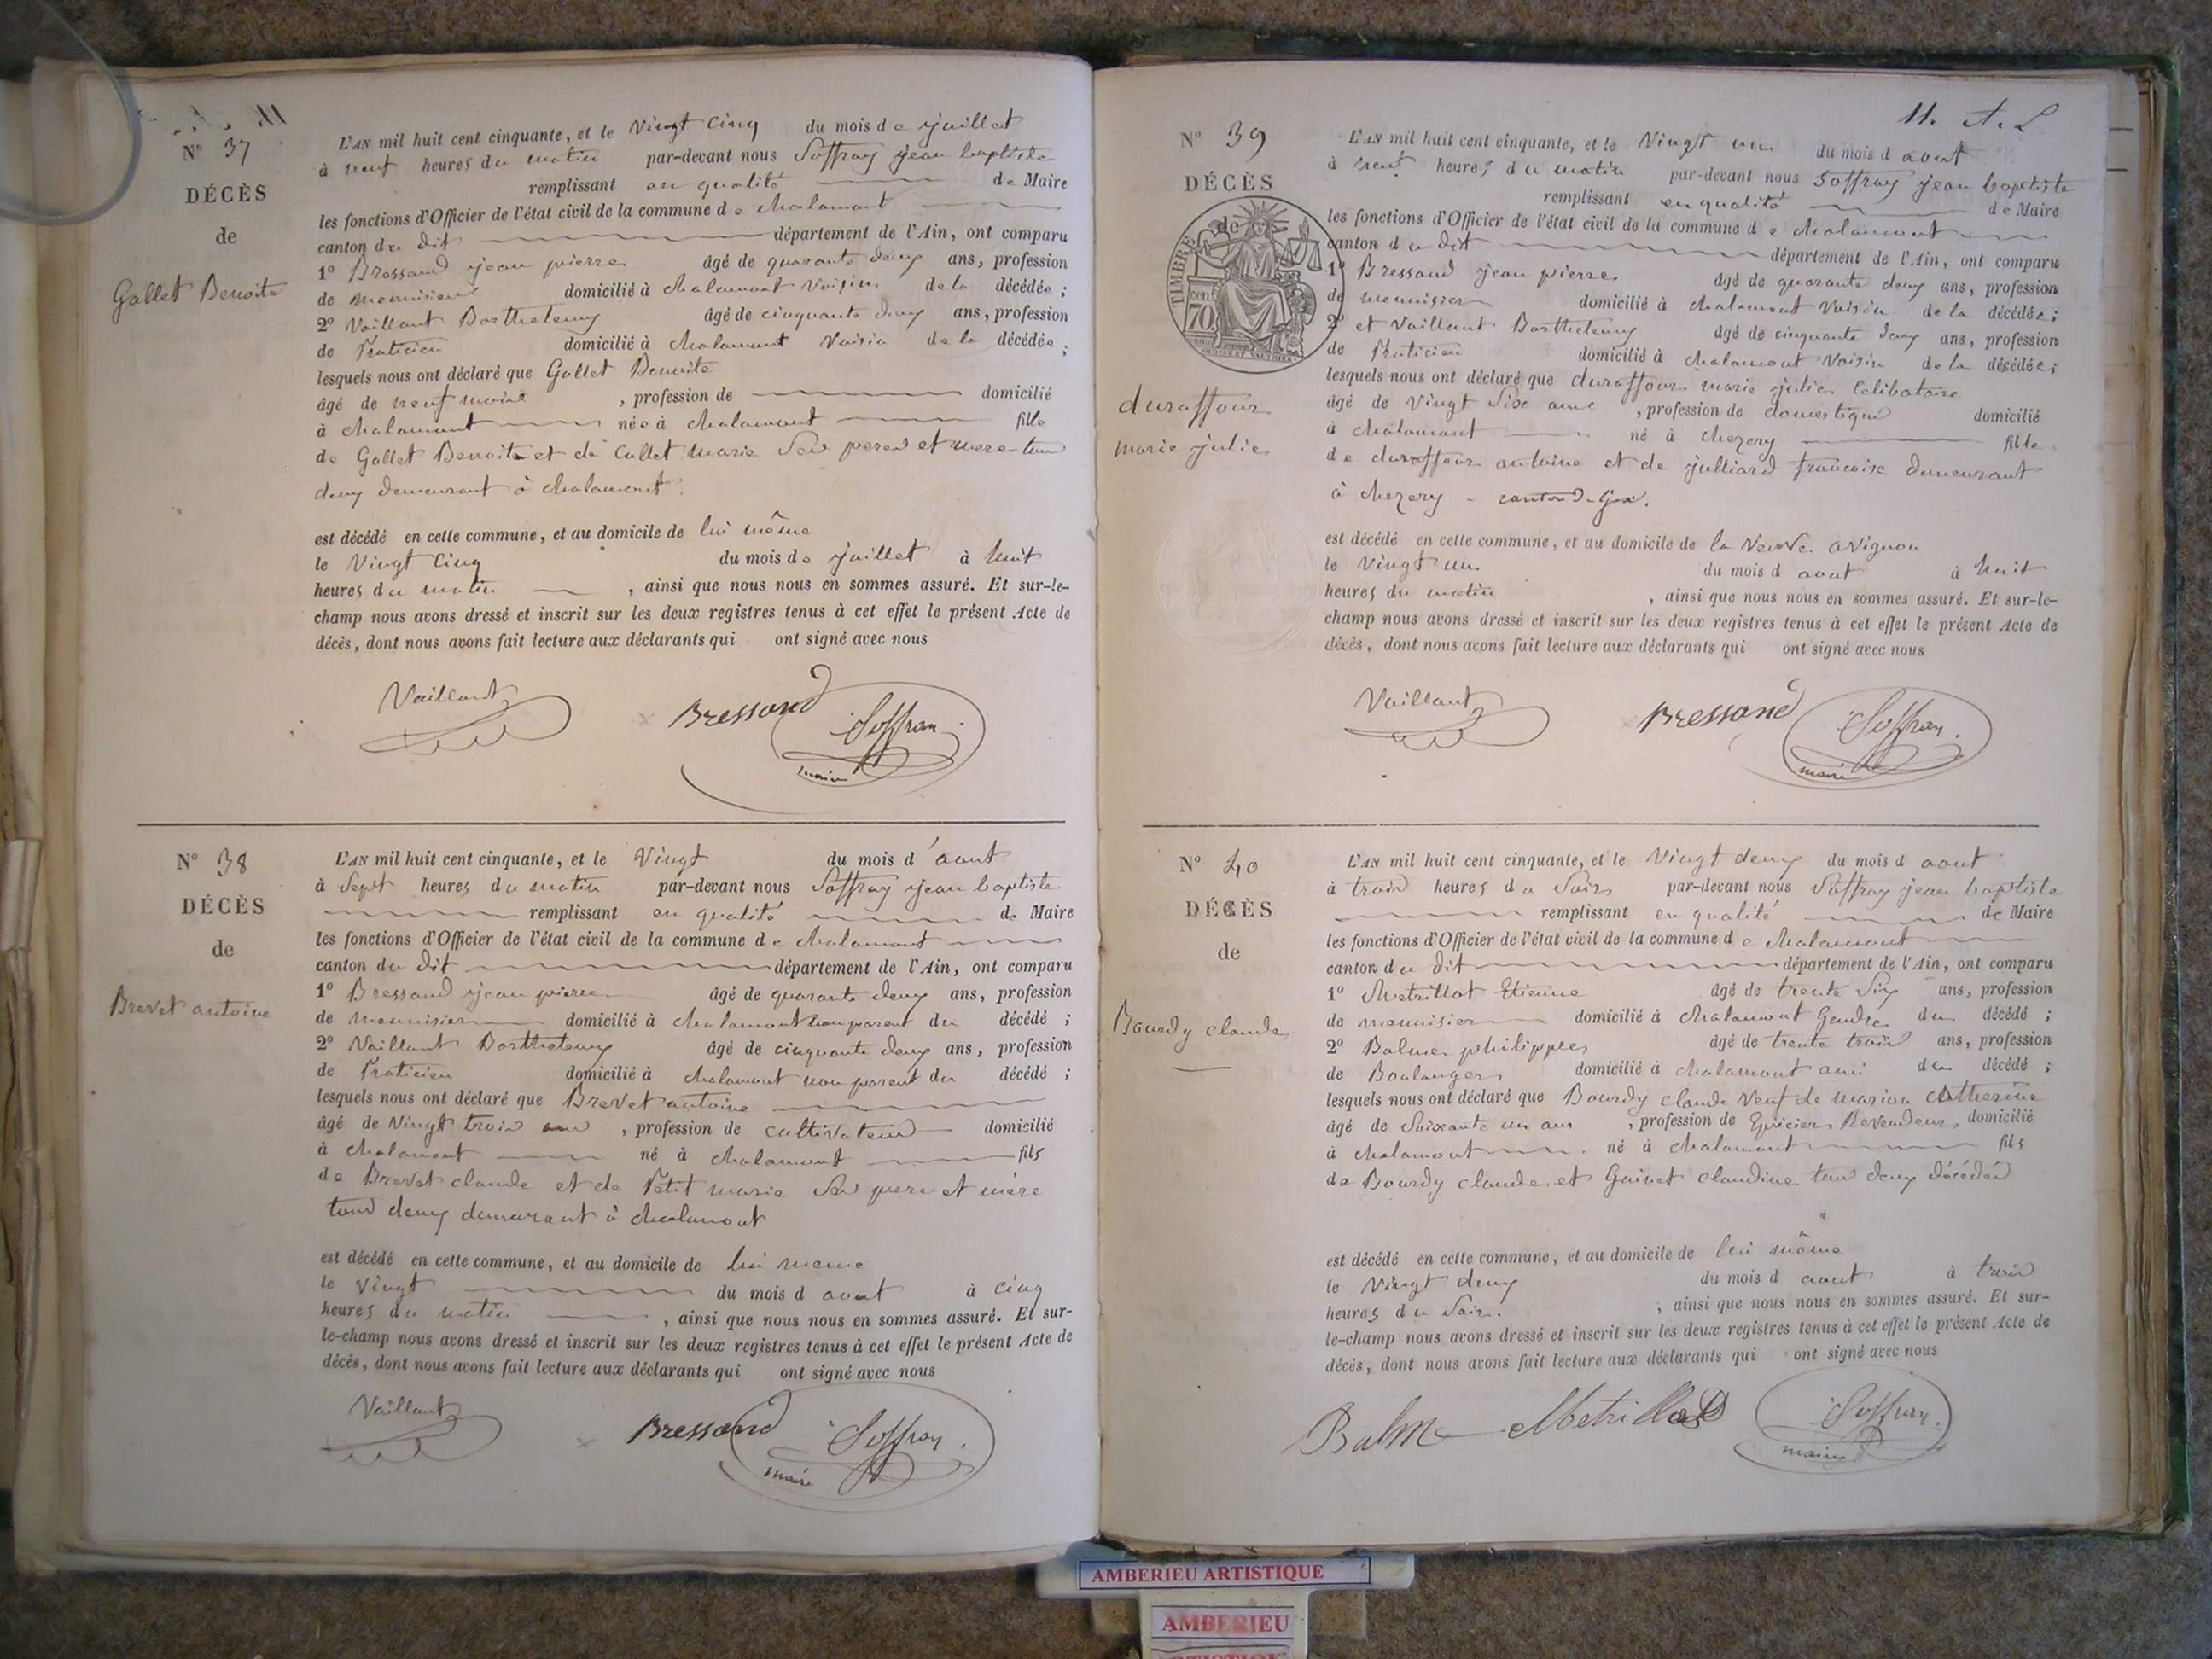 N° 37
DÉCÈS
de
Gallet Benoite
L'AN mil huit cent cinquante, et le Vingt Cinq du mois de juillet
à neuf heures du matin par-devant nous Soffray jean baptiste
remplissant en qualité de Maire
les fonctions d'Officier de l'état civil de la commune de chalamont
canton du dit département de l'Ain, ont comparu
1° Bressand jean pierre âgé de quarante deux ans, profession
de menuisier domicilié à chalamont Voisin de la décédée ;
2° Vaillant Barthelemy âgé de cinquante deux ans, profession
de Praticien domicilié à chalamont Voisin de la décédée ;
lesquels nous ont déclaré que Gallet Benoite
âgé de neuf mois , profession de domicilié
à chalamont née à chalamont fille
de Gallet Benoit et de Collet marie Ses peres et mere tous
deux demeurant à chalamont.
est décédé en cette commune, et au domicile de lui même
le Vingt Cinq du mois de juillet à huit
heures du matin , ainsi que nous nous en sommes assuré. Et sur-le-
champ nous avons dressé et inscrit sur les deux registres tenus à cet effet le présent Acte de
décès, dont nous avons fait lecture aux déclarants qui ont signé avec nous
Vaillant Bressand Soffray
maire
N° 38
DÉCÈS
de
Brevet antoine
L'AN mil huit cent cinquante, et le Vingt du mois d'aout
à Sept heures du matin par-devant nous Soffray jean baptiste
remplissant en qualité de Maire
les fonctions d'Officier de l'état civil de la commune de chalamont
canton du dit département de l'Ain, ont comparu
1° Bressand jean pierre âgé de quarante deux ans, profession
de menuisier domicilié à chalamont non parent du décédé ;
2° Vaillant Barthelemy âgé de cinquante deux ans, profession
de Praticien domicilié à chalamont non parent du décédé ;
lesquels nous ont déclaré que Brevet antoine
âgé de Vingt trois ans , profession de cultivateur domicilié
à chalamont né à chalamont fils
de Brevet claude et de Petit marie Ses pere et mère
tous deux demurant à chalamont
est décédé en cette commune, et au domicile de lui meme
le Vingt du mois d aout à cinq
heures du matin , ainsi que nous nous en sommes assuré. Et sur-
le-champ nous avons dressé et inscrit sur les deux registres tenus à cet effet le présent Acte de
décès, dont nous avons fait lecture aux déclarants qui ont signé avec nous
Vaillant Bressand Soffray
maire
11. A. L
N° 39
DÉCÈS
de
TIMBRE
70 cen
duraffour
marie julie
L'AN mil huit cent cinquante, et le Vingt un du mois d aout
à neuf heures du matin par-devant nous Soffray jean baptiste
remplissant en qualité de Maire
les fonctions d'Officier de l'état civil de la commune de chalamont
canton du dit département de l'Ain, ont comparu
1° Bressand jean pierre âgé de quarante deux ans, profession
de menuisier domicilié à chalamont Voisin de la décédée ;
2° et Vaillant Barthelemy âgé de cinquante deux ans, profession
de Praticien domicilié à chalamont Voisin de la décédée ;
lesquels nous ont déclaré que duraffour marie julie Celibataire
âgé de Vingt Six ans , profession de domestique domicilié
à chalamont né à chezery fille
de duraffour antoine et de julliard francoise demeurant
à chezery - canton de Gex.
est décédé en cette commune, et au domicile de la Veuve avignon
le Vingt un du mois d aout à huit
heures du matin , ainsi que nous nous en sommes assuré. Et sur-le-
champ nous avons dressé et inscrit sur les deux registres tenus à cet effet le présent Acte de
décès, dont nous avons fait lecture aux déclarants qui ont signé avec nous
Vaillant Bressand Soffray
maire
N° 40
DÉCÈS
de
Bourdy claude
L'AN mil huit cent cinquante, et le Vingt deux du mois d aout
à trois heures du Soir par-devant nous Soffray jean baptiste
remplissant en qualité de Maire
les fonctions d'Officier de l'état civil de la commune de chalamont
canton du dit département de l'Ain, ont comparu
1° Metrillot Etienne âgé de trente Six ans, profession
de menuisier domicilié à chalamont Gendre du décédé ;
2° Balme philippe âgé de trente trois ans, profession
de Boulanger domicilié à chalamont ami du décédé ;
lesquels nous ont déclaré que Bourdy claude Veuf de marion Catherine
âgé de Soixante un ans , profession de Epicier Revendeur, domicilié
à chalamont né à chalamont fils
de Bourdy claude et Guinet claudine tous deux décédés
est décédé en cette commune, et au domicile de lui même
le Vingt deux du mois d aout à trois
heures du Soir. , ainsi que nous nous en sommes assuré. Et sur-
le-champ nous avons dressé et inscrit sur les deux registres tenus à cet effet le présent Acte de
décès, dont nous avons fait lecture aux déclarants qui ont signé avec nous
Balme Metrillot Soffray
maire
AMBERIEU ARTISTIQUE
AMBERIEU
ARTISTIQUE